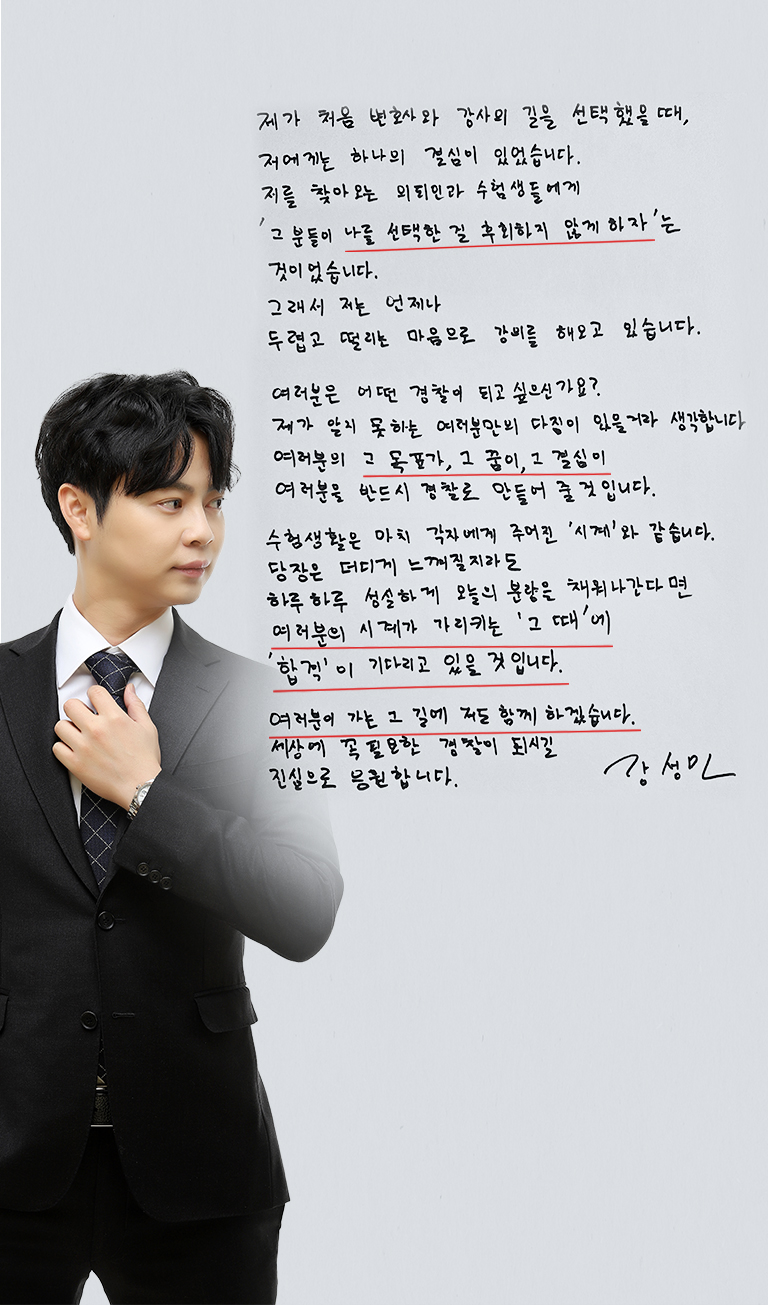 제가 처음 변호사와 강사의 길을 선택했을 때,
저에게는 하나의 결심이 있었습니다.
저를 찾아오는 의뢰인과 수험생들에게
'그 분들이 나를 선택한 걸 후회하지 않게 하자'는
것이었습니다.
그래서 저는 언제나
두렵고 떨리는 마음으로 강의를 해오고 있습니다.
여러분은 어떤 경찰이 되고 싶으신가요?
제가 알지 못하는 여러분만의 다짐이 있을거라 생각합니다
여러분의 그 목표가, 그 꿈이, 그 결심이
여러분을 반드시 경찰로 만들어 줄 것입니다.
수험생활은 마치 각자에게 주어진 '시계'와 같습니다.
당장은 더디게 느껴질지라도
하루하루 성실하게 오늘의 분량을 채워나간다면
여러분의 시계가 가리키는 '그 때'에
'합격'이 기다리고 있을 것입니다.
여러분이 가는 그 길에 저도 함께 하겠습니다.
세상에 꼭 필요한 경찰이 되시길
진심으로 응원합니다.
강성민